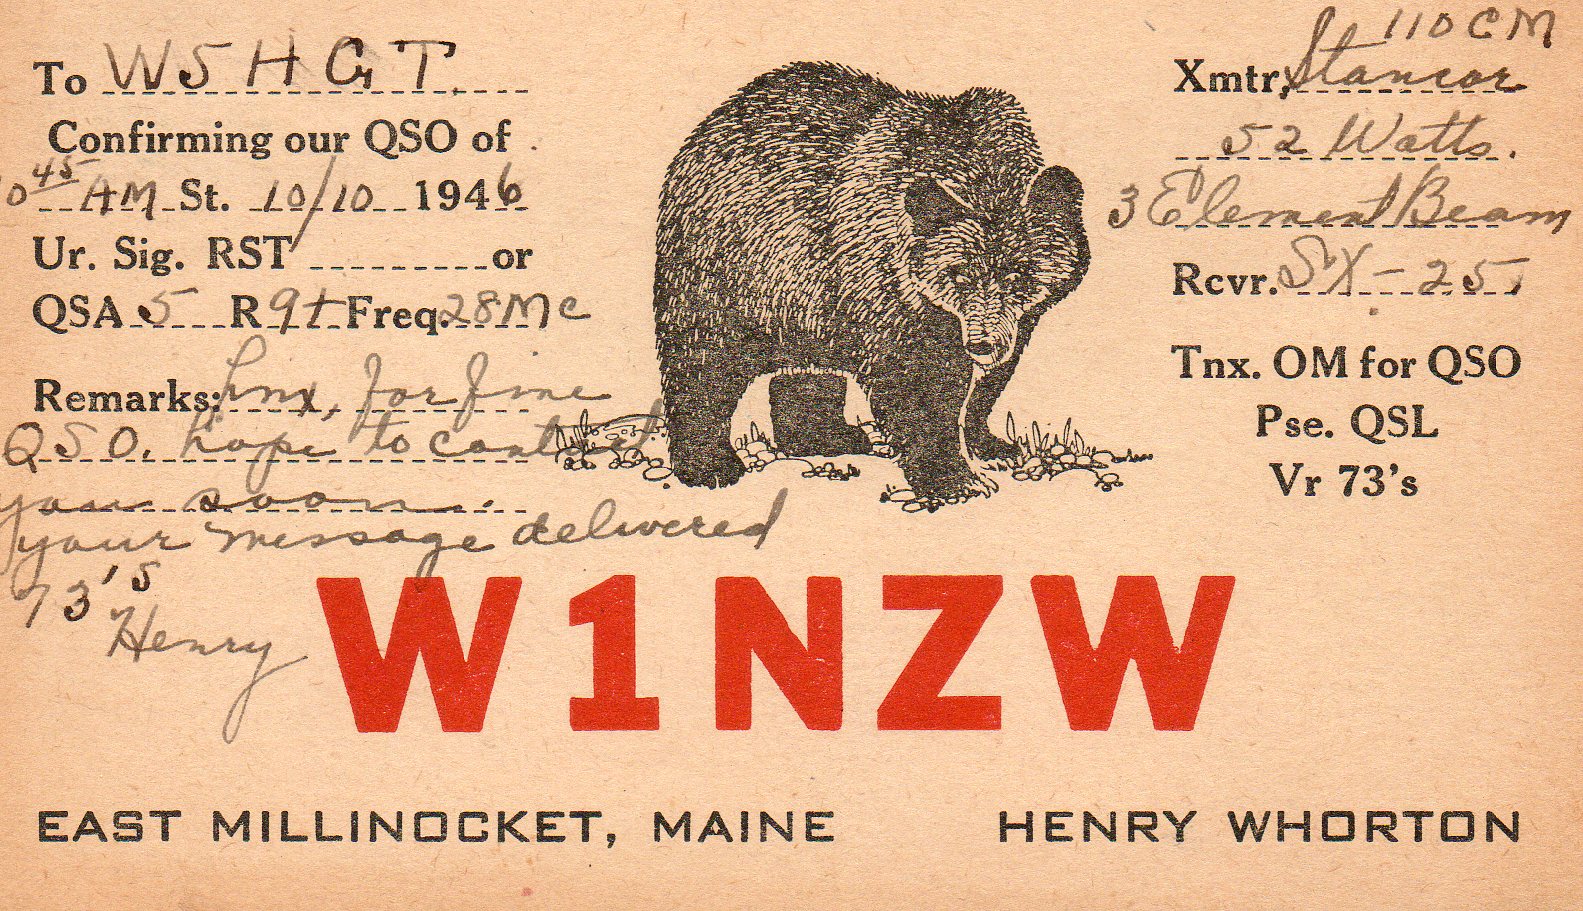 To W5HGT
Confirming our QSO of
10 45 AM St. 10/10 1946
Ur. Sig. RST or
QSA 5 R 9+ Freq. 28 Mc
Remarks: Tnx, for fine
QSO. hope to contact
you soon.
your message delivered
73's
Henry
110 CM
Xmtr. Stancor
52 Watts.
3 Element Beam
Rcvr. SX-25
Tnx. OM for QSO
Pse. QSL
Vr 73's
W1NZW
EAST MILLINOCKET, MAINE HENRY WHORTON